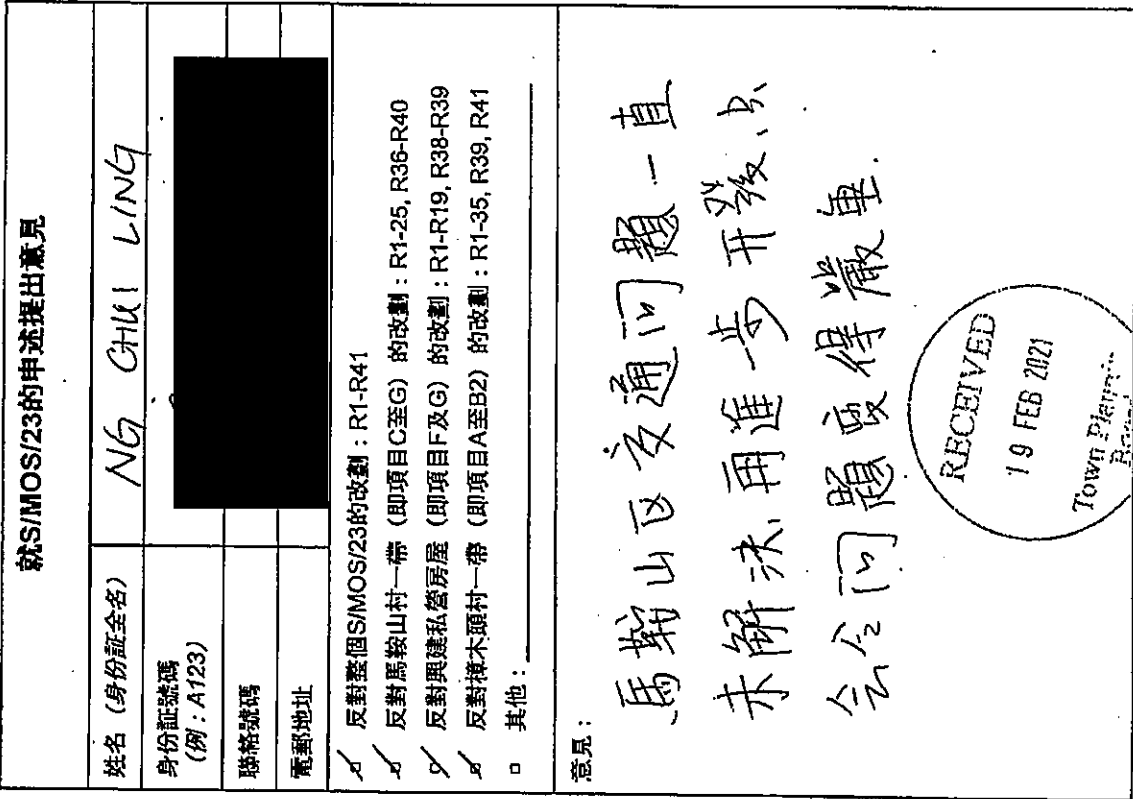 就S/MOS/23的申述提出意見
姓名 (身份証全名)
NG CHUI LING
身份証號碼
(例：A123)
聯絡號碼
電郵地址
反對整個S/MOS/23的改劃：R1-R41
反對馬鞍山村一帶 (即項目C至G) 的改劃：R1-25, R36-R40
反對興建私營房屋 (即項目F及G) 的改劃：R1-R19, R38-R39
反對樟木頭村一帶 (即項目A至B2) 的改劃：R1-35, R39, R41
其他：
意見：
馬鞍山区交通问題一直
未解決,再進一步開發、只
会令问題變得嚴重.
RECEIVED
19 FEB 2021
Town Planning
Board